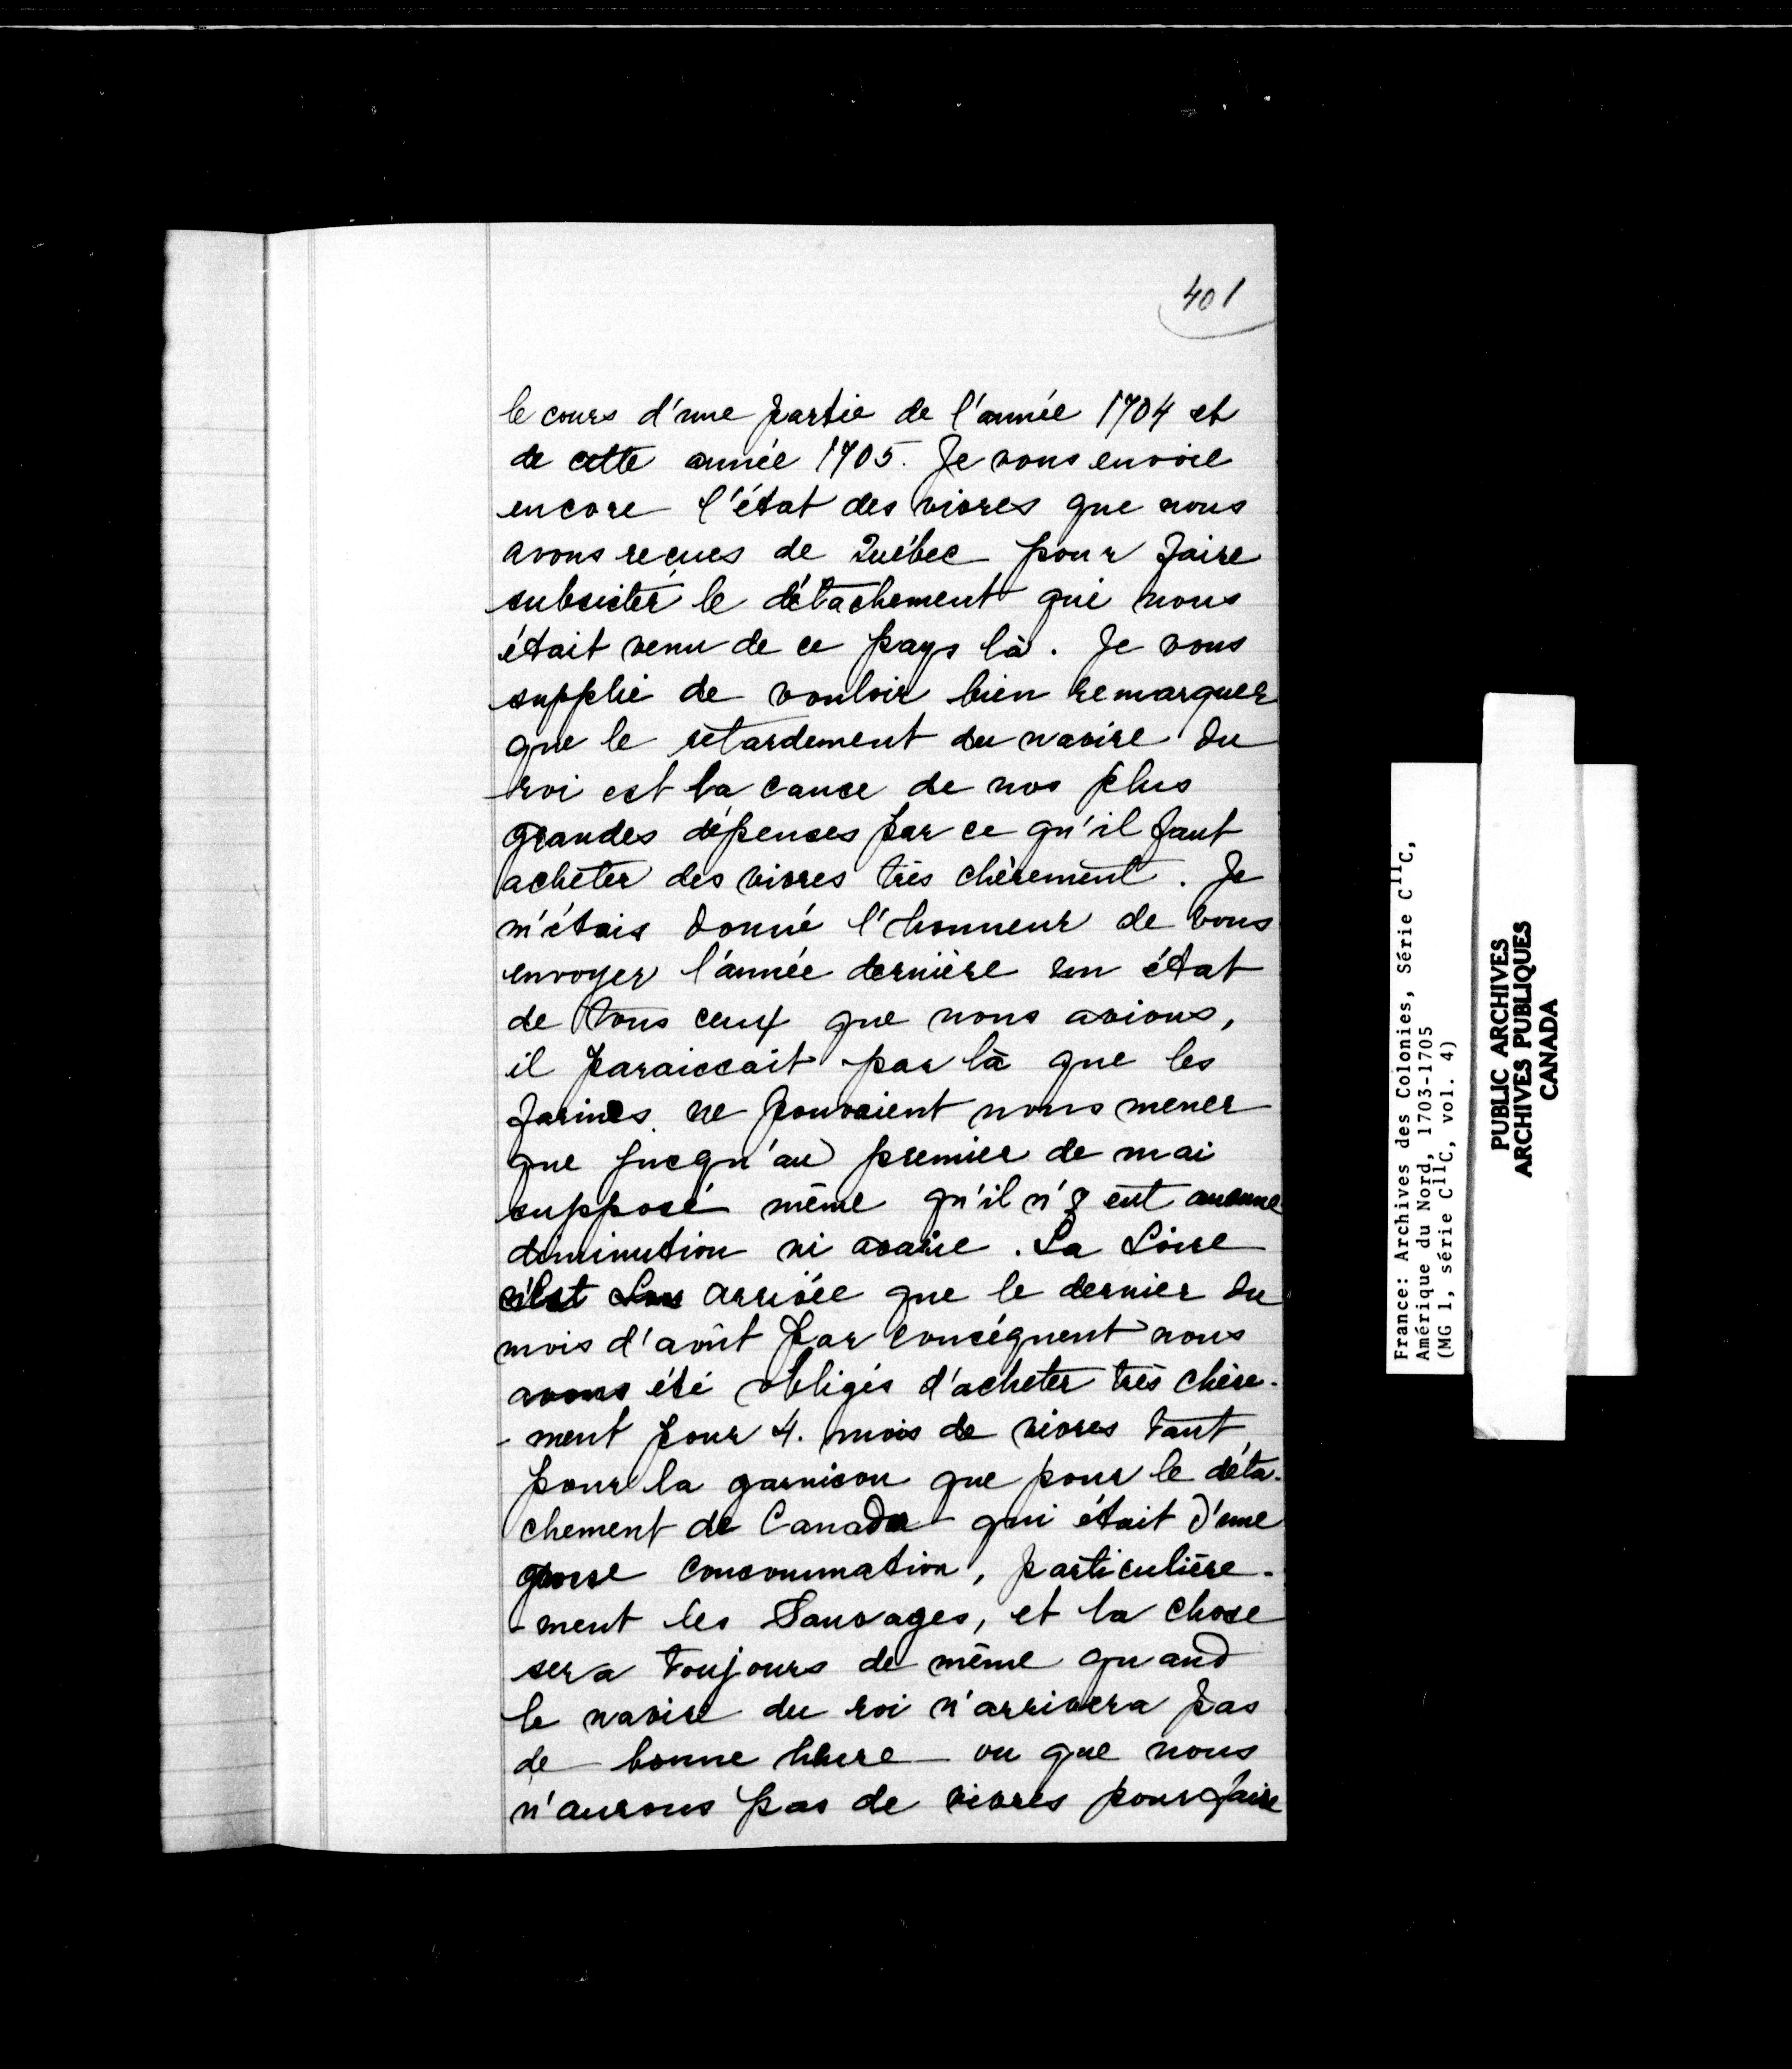 401
le cours d'une partie de l'année 1704 et
de cette année 1705. Je vous envoie
encore l'état des vivres que nous
avons reçues de Québec pour faire
subsister le détachement qui nous
était venu de ce pays là. Je vous
supplie de vouloir bien remarquer
que le retardement du navire du
roi est la cause de nos plus
grandes dépenses par ce qu'il faut
acheter des vivres très chèrement. Je
m'étais donné l'honneur de vous
envoyer l'année dernière un état
de tous ceux que nous avions,
il paraissait par là que les
farines ne pouvaient nous mener
que jusqu'au premier de mai
supposé même qu'il n'y eut aucune
diminution ni avarie. La Loire
n'est arrivée que le dernier du
mois d'août par conséquent nous
avons été obligés d'acheter très chère-
-ment pour 4. mois de vivres tant
pour la garnison que pour le déta-
chement de Canada qui était d'une
grosse consommation, particulière-
-ment les Sauvages, et la chose
sera toujours de même quand
le navire du roi n'arrivera pas
de bonne heure ou que nous
n'aurons pas de vivres pour faire
France: Archives des Colonies, Série C11C,
Amérique du Nord, 1703-1705
(MG 1, série C11C, vol. 4)
PUBLIC ARCHIVES
ARCHIVES PUBLIQUES
CANADA